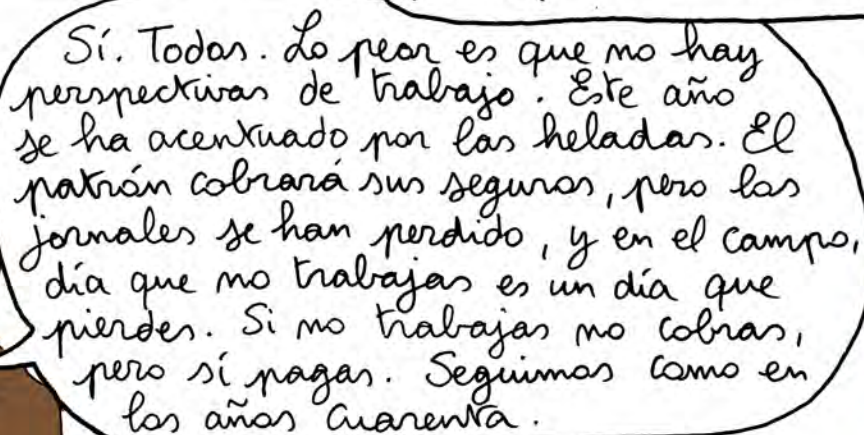 Sí. Todos. Lo peor es que no hay
perspectivas de trabajo. Este año
se ha acentuado por las heladas. El
patrón cobrará sus seguros, pero los
jornales se han perdido, y en el campo,
día que no trabajas es un día que
pierdes. Si no trabajas no cobras,
pero sí pagas. Seguimos como en
los años cuarenta.